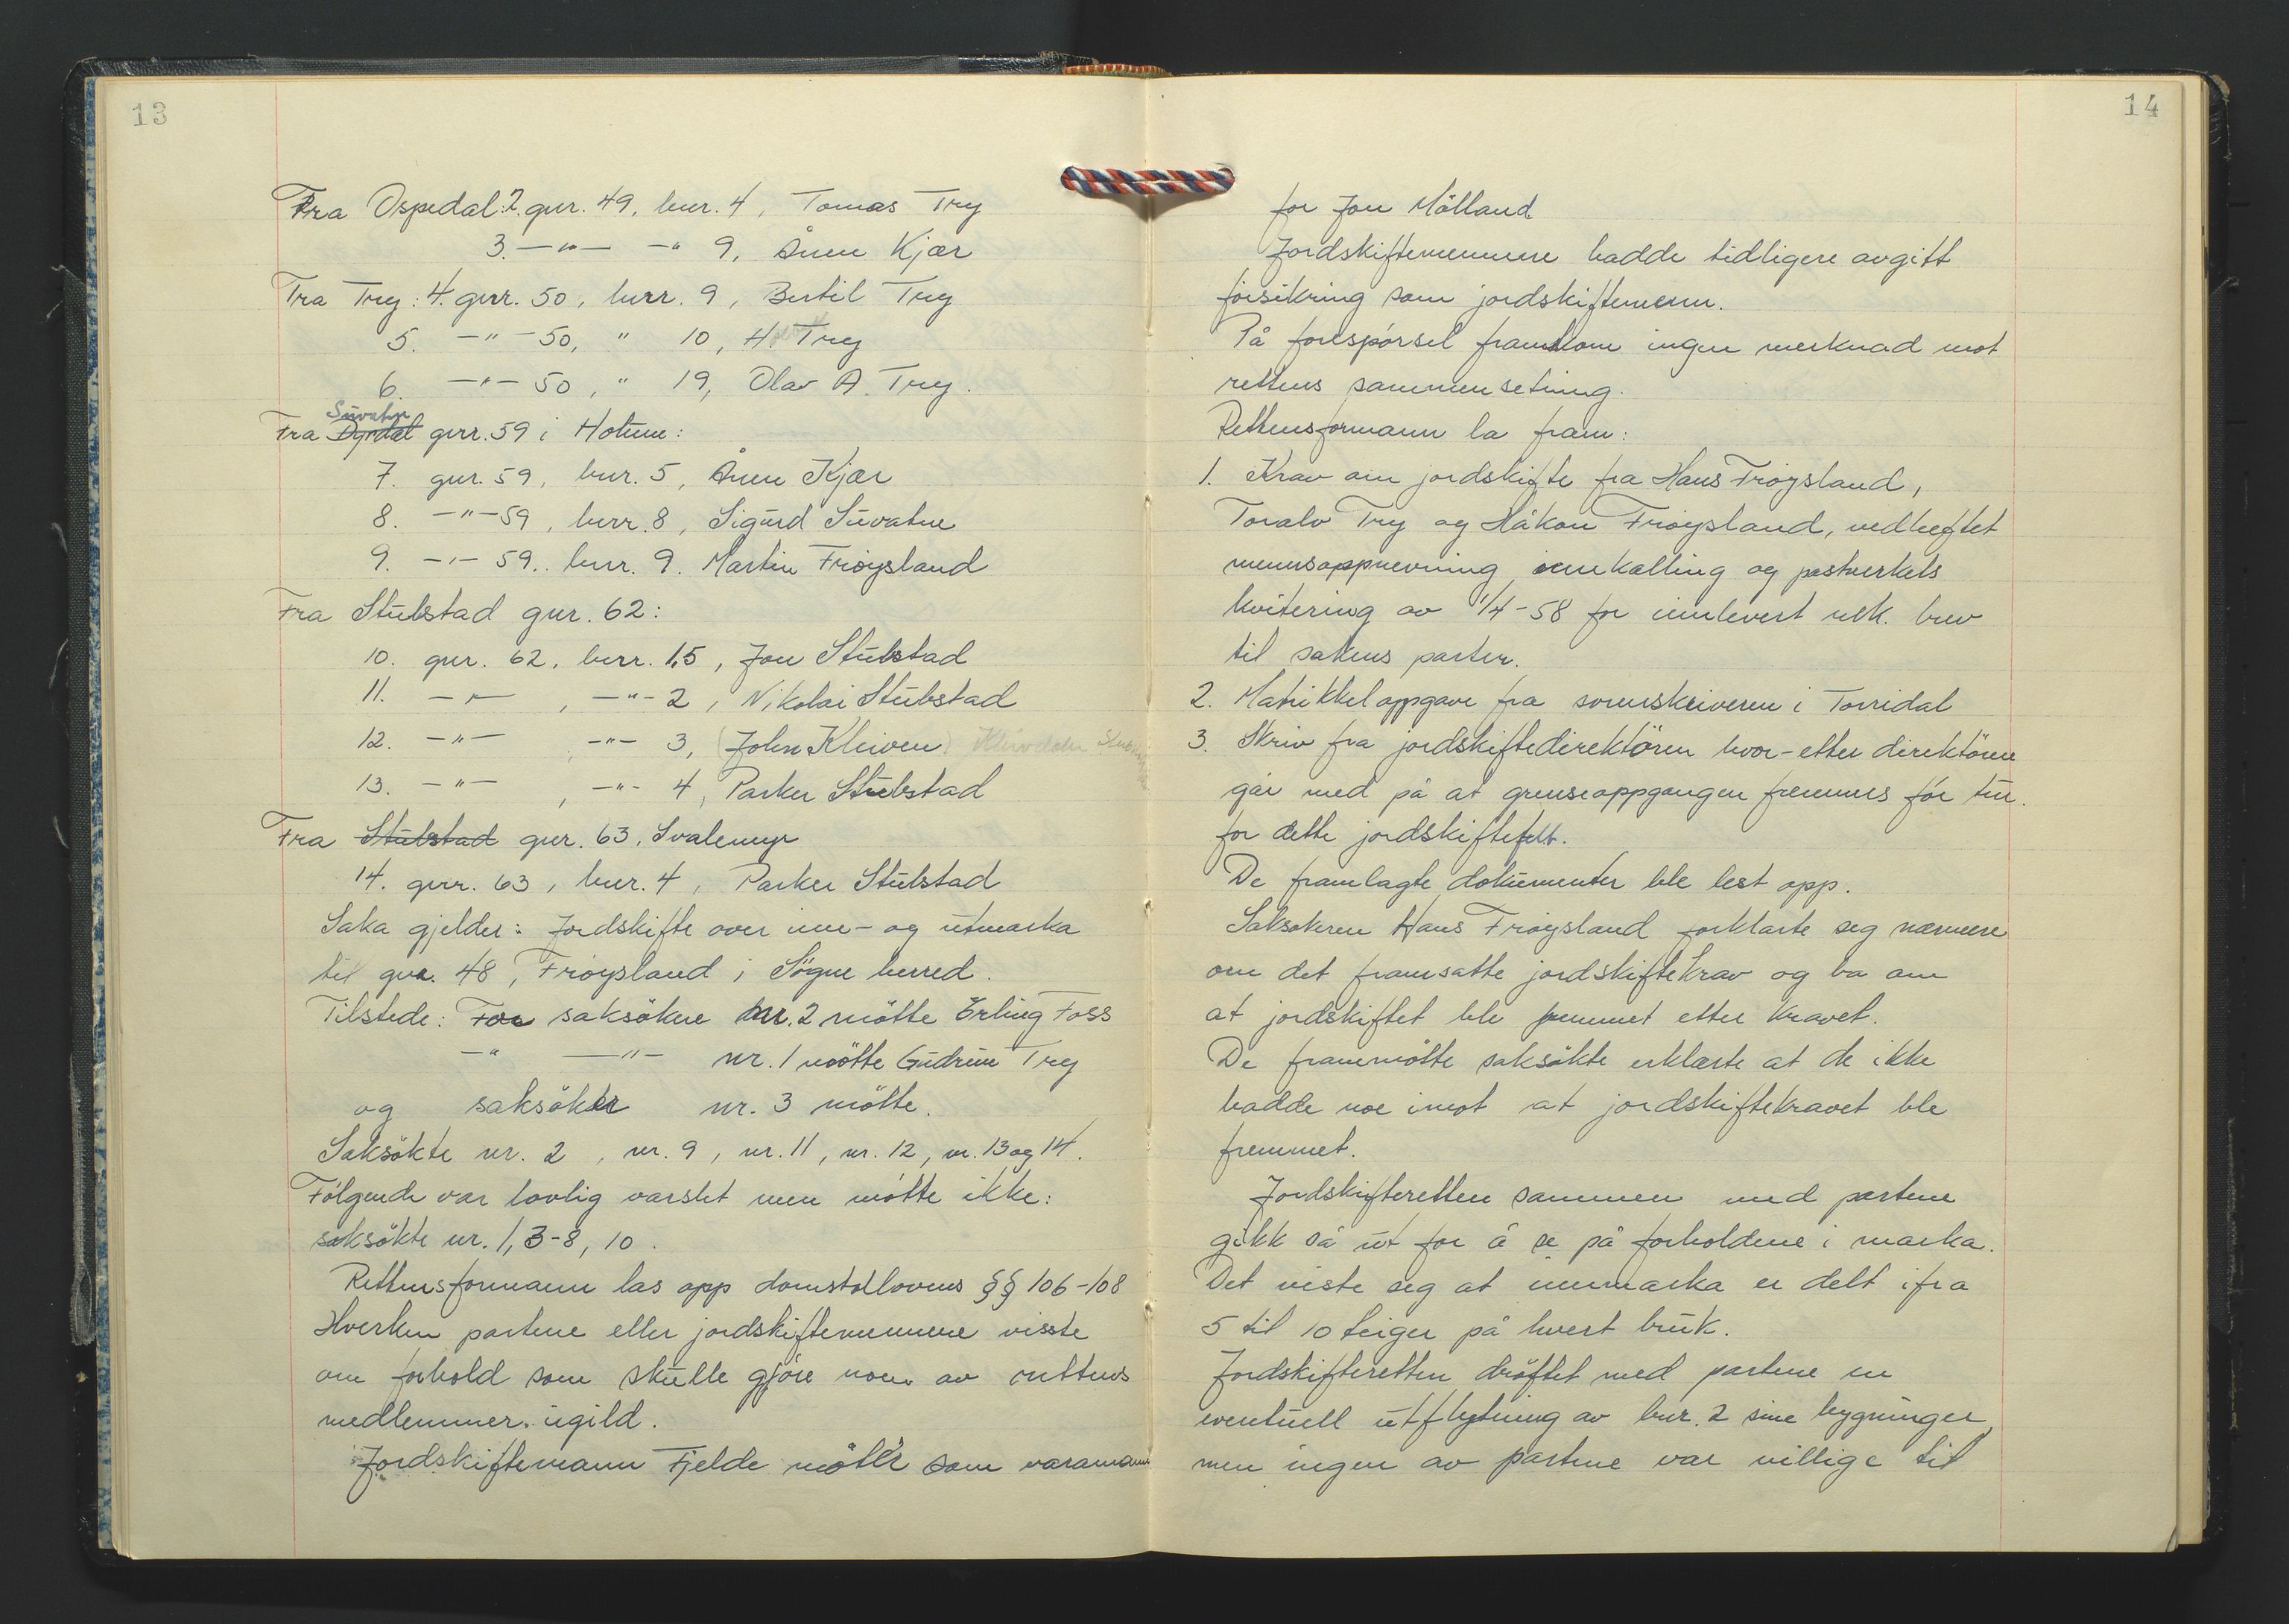 13
Fra Ospedal: 2. gnr. 49, bnr. 4, Tomas Try
3. —"— —" 9, Ånen Kjær
Fra Try: 4. gnr. 50, bnr. 9, Bertil Try
5. —"— 50, " 10, H. Try
6. —"— 50, " 19, Olav A. Try.
Suvatn
Fra Dyrdal gnr. 59 i Holum:
7. gnr. 59, bnr. 5, Ånen Kjær
8. —"— 59, bnr. 8, Sigurd Suvatne
9. —"— 59.. bnr. 9. Martin Fröysland
Fra Stubstad gnr. 62:
10. gnr. 62, bnr. 1,5, Jon Stubstad
11. —"— , —"— 2, Nikolai Stubstad
12. —"— , —"— 3, (John Kleiven)
13. —"— , —"— 4, Parker Stubstad
Fra Stubstad gnr. 63, Svalemyr
14. gnr. 63, bnr. 4, Parker Stubstad
Saka gjelder: Jordskifte over inn- og utmarka
til gnr. 48, Fröysland i Sögne herred.
Tilstede: For saksökere nr. 2 mötte Erling Foss
—" —"— nr. 1 mötte Gudrun Try
og saksöker nr. 3 mötte.
Saksökte nr. 2, nr. 9, nr. 11, nr. 12, nr. 13 og 14.
Fölgende var lovlig varslet men mötte ikke:
saksökte nr. 1, 3-8, 10.
Rettensformann las opp domstollovens §§ 106-108
Hverken partene eller jordskiftemennene visste
om forhold som skulle gjöre noen av rettens
medlemmer ugild.
Jordskiftemann Fjelde möter som varamann
14
for Jon Mölland
Jordskiftemennene hadde tidligere avgitt
forsikring som jordskiftemenn.
På forespörsel framkom ingen merknad mot
rettens sammensetning.
Rettensformann la fram:
1. Krav om jordskifte fra Hans Fröysland,
Toralv Try og Håkon Fröysland, vedheftet
mennsoppnevning, innkalling og postverkets
kvitering av 1/4-58 for innlevert rek. brev
til sakens parter.
2. Matrikkeloppgave fra sorenskriveren i Torridal
3. Skriv fra jordskiftedirektören hvor-etter direktören
går med på at grenseoppgangen fremmes för tur.
for dette jordskiftefelt.
De framlagte dokumenter ble lest opp.
Saksökeren Hans Fröysland forklarte seg nærmere
om det framsatte jordskiftekrav og ba om
at jordskiftet ble fremmet etter kravet.
De frammötte saksökte erklærte at de ikke
hadde noe imot at jordskiftekravet ble
fremmet.
Jordskifteretten sammen med partene
gikk så ut for å se på forholdene i marka.
Det viste seg at innmarka er delt ifra
5 til 10 teiger på hvert bruk.
Jordskifteretten dröftet med partene en
eventuell utflytning av bnr. 2 sine bygninger,
men ingen av partene var villige til